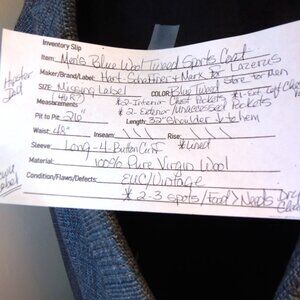 Inventory Slip
Item: Men's Blue Wool Tweed Sports Coat
Maker/Brand/Label: Hart Schaffner & Marx for Lazerus
Store for Men
SIZE: Missing Label COLOR: Blue Tweed
Measurements: *2-Interior Chest Pockets
*2-Exterior/unaccessed Pockets
Pit to Pit: Length: 32" Shoulder to hem
Waist: 48" Inseam: Rise:
Sleeve: Long-4 Button Cuff *Lined
Material: 100% Pure Virgin Wool
Condition/Flaws/Defects: EUC/Vintage
* 2-3 spots/Food> Needs